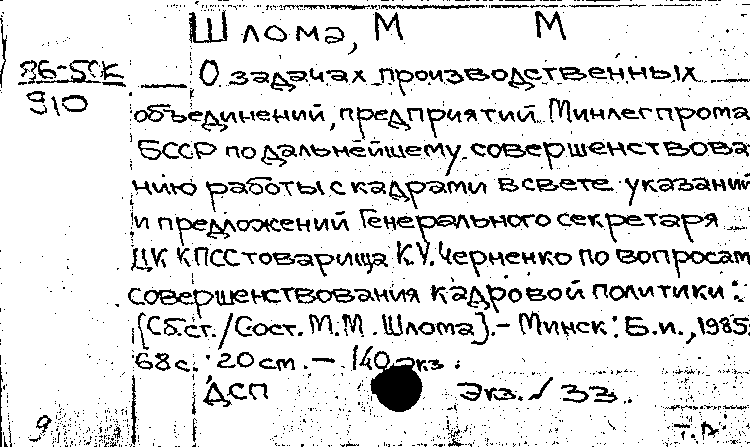 Шлома, М М
86-5СК
910
О задачах производственных
объединений, предприятий Минлегпрома
БССР по дальнейшему совершенствова
нию работы с кадрами в свете указаний
и предложений Генерального секретаря
ЦК КПСС товарища К.У. Черненко по вопросам
совершенствования кадровой политики:
[Сб.ст./Сост. М.М. Шлома].- Минск: Б.и., 1985.
68 с. 20 см. — 140 экз.
ДСП Экз. √ 33.
9